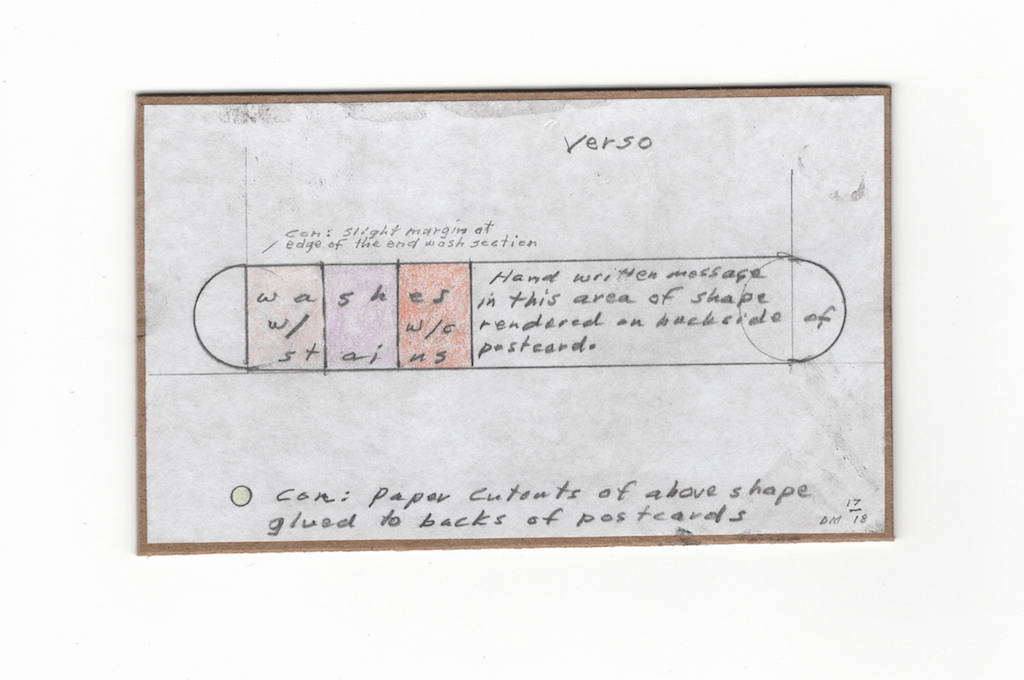 Verso
con: slight margin at
/ edge of the end wash section
w a s h e s
w/ w/c
st ai ns
Hand written message
in this area of shape
rendered on backside of
postcard.
con: paper cutouts of above shape
glued to backs of postcards
17
DM 18